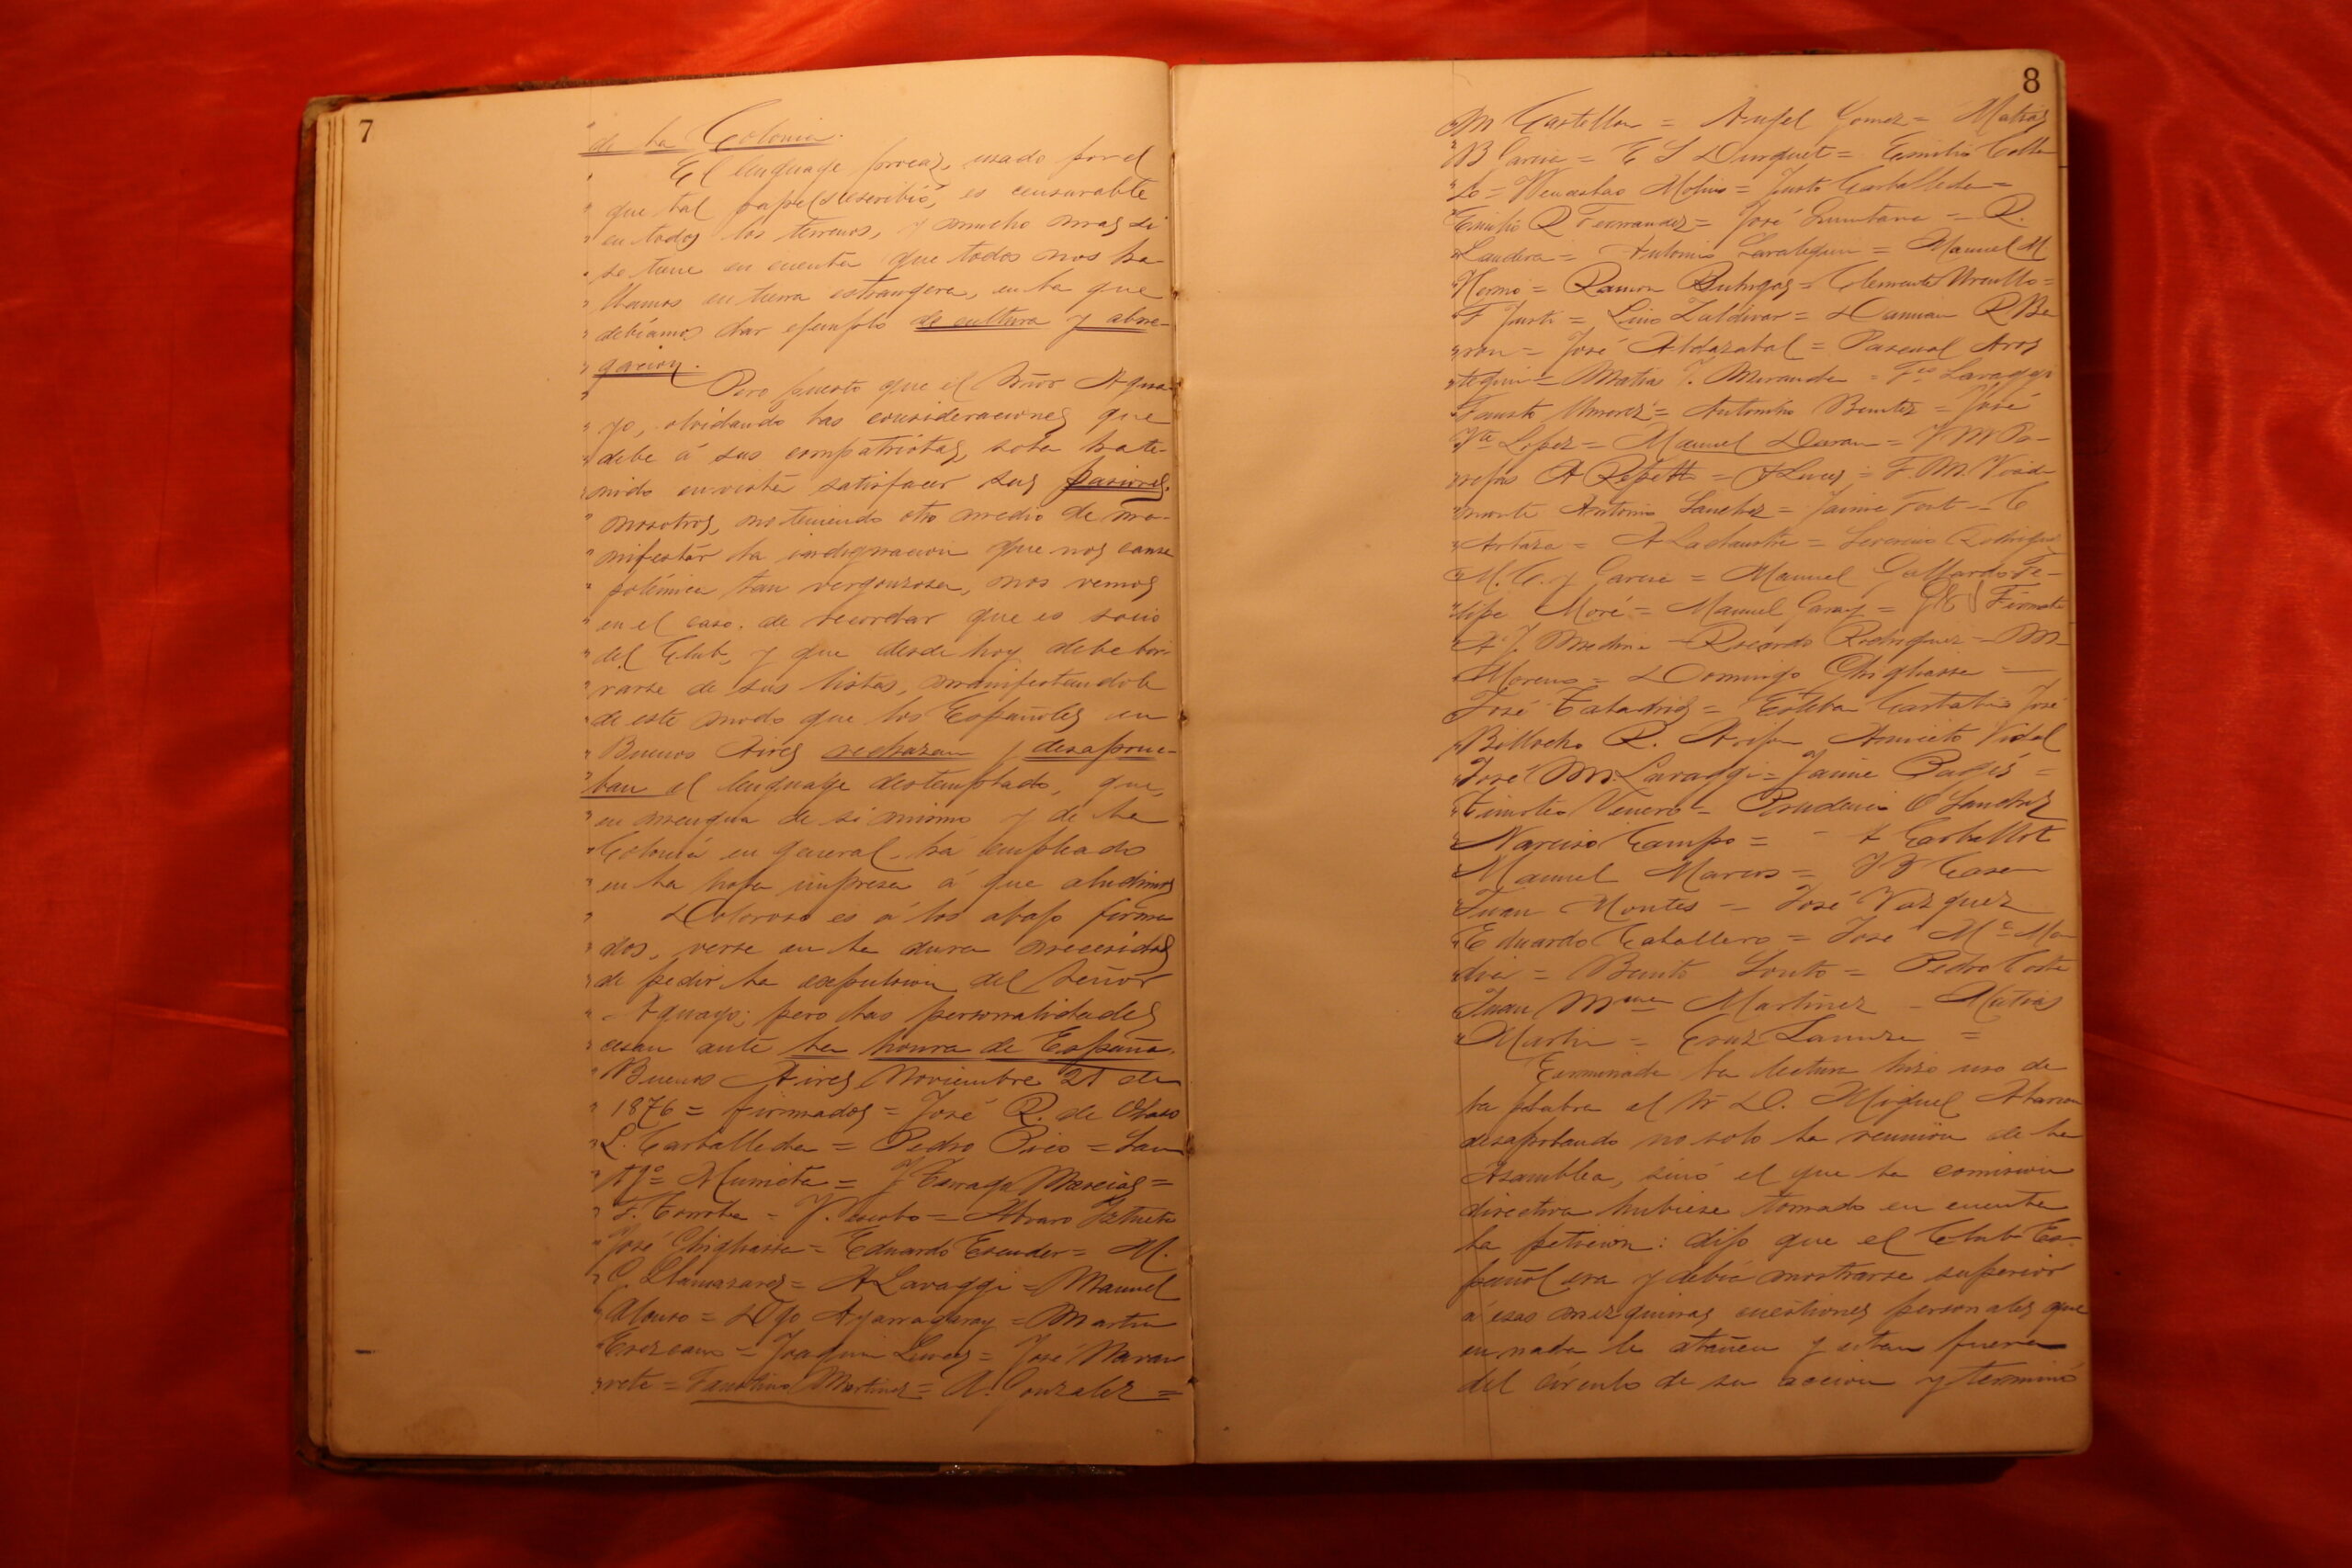 7
de la Colonia.
El lenguage procaz, usado por el
que tal papel suscribió, es censurable
en todos los terrenos, y mucho mas si
se tiene en cuenta que todos nos ha-
llamos en tierra estrangera, en la que
debiamos dar ejemplo de cultura y abne-
gacion.
Pero puesto que el Señor Agua-
yo, olvidando las consideraciones que
debe á sus compatriotas, solo ha te-
nido en vista satisfacer sus pasiones,
nosotros, no teniendo otro medio de ma-
nifestar la indignacion que nos causa
polémica tan vergonzosa, nos vemos
en el caso de recordar que es socio
del Club, y que desde hoy debe bor-
rarse de sus listas, manifestandole
de este modo que los Españoles en
Buenos Aires rechazan y desaprue-
ban el lenguage destemplado, que,
en mengua de si mismo y de la
Colonia en general ha empleado
en la hoja impresa á que aludimos
Doloroso es á los abajo firma
dos, verse en la dura necesidad
de pedir la expulsion del Señor
Aguayo; pero las personalidades
cesan ante la honra de España.
Buenos Aires Noviembre 21 de
1876 = firmados = José R. de Olaso
L. Carballeda = Pedro Pico = San
tgo = Murrieta = J Tarrago Macias =
F. Torroba = J. = Alvaro Iztueta
José Chighasse = Eduardo Escuder = M.
C. Llamazares = A Lavaggi = Manuel
Alonso = Dgo Ayarragaray = Martin
= Joaquin Luces = José Navar
rete = Faustino Martinez = A. Gonzalez =
8
M Castellon = Angel Gomez = Matias
B Garcia = E S Durquet = Emilio Colla
do = Wenceslao Molins = Justo Carballeda =
Emilio R Fernandez = José Quintana = R.
Landeira = Antonio = Manuel M
Hermo = Ramon Buhigas = Clemente Urcullo =
F Justi = Luis Zaldivar = Damian R Be
ron = José Aldazabal = Pascual Aros
tegui = Matias J. Miranda = Fco Lavaggi
Fausto = Antonino Benitez = José
Vte Lopez = Manuel Duran = J M Pa-
A Repetto = J Luces = F. M. Vaid-
Antonio Sanchez = Jaime Font = C
Artaza = A Ladaustre = Severino Rodriguez
M. C. y Garcia = Manuel Gallardo Fe-
lipe Moré = Manuel Garay =
A J. Medina = Ricardo Rodriguez = M
Moreno = Domingo Chighasse =
José Taladriz = Esteban José
Billocho R. Aniceto Vidal
José M. Lavaggi = Jaime Bagés =
Timoteo Venero = Prudencio O Sanchez
Narciso Campo = A Carballot
Manuel Marcos = J B Casa
Juan Montes = José Vazquez
Eduardo Caballero = José Ma Man
dia = Benito Souto = Pedro Costa
Juan Martinez = Matias
Martin = Cruz Lanuza =
Terminada la lectura hizo uso de
la plabra el Sr D. Miguel
desaprobando no solo la reunion de la
Asamblea, sinó el que la comision
directiva hubiese tomado en cuenta
la peticion: dijo que el Club Es-
pañol era y debia mostrarse superior
á esas mezquinas cuestiones personales que
en nada le atañen y estan fuera
del circulo de su accion y terminó